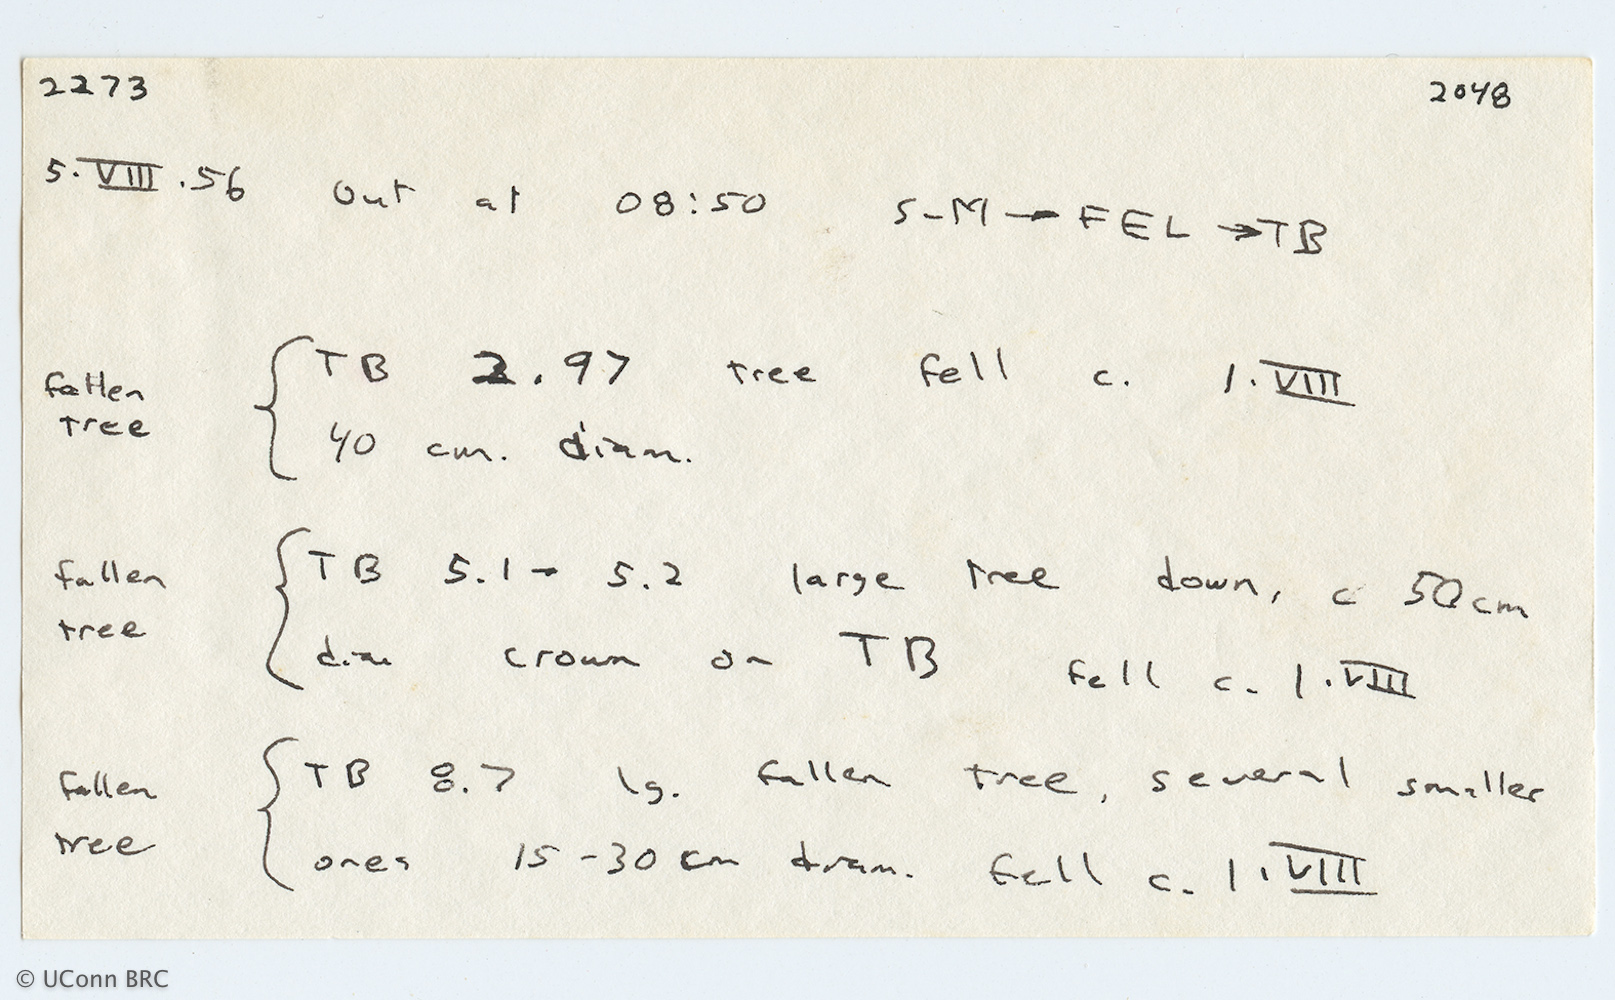 2273 2048
5.VIII.56 Out at 08:50 S-M → FEL → TB
fallen tree { TB 2.97 tree fell c. 1.VIII
40 cm. diam.
fallen tree { TB 5.1 - 5.2 large tree down, c 50cm
diam crown on TB fell c. 1.VIII
fallen tree { TB 8.7 lg. fallen tree, several smaller
ones 15-30 cm diam. fell c. 1.VIII
© UConn BRC